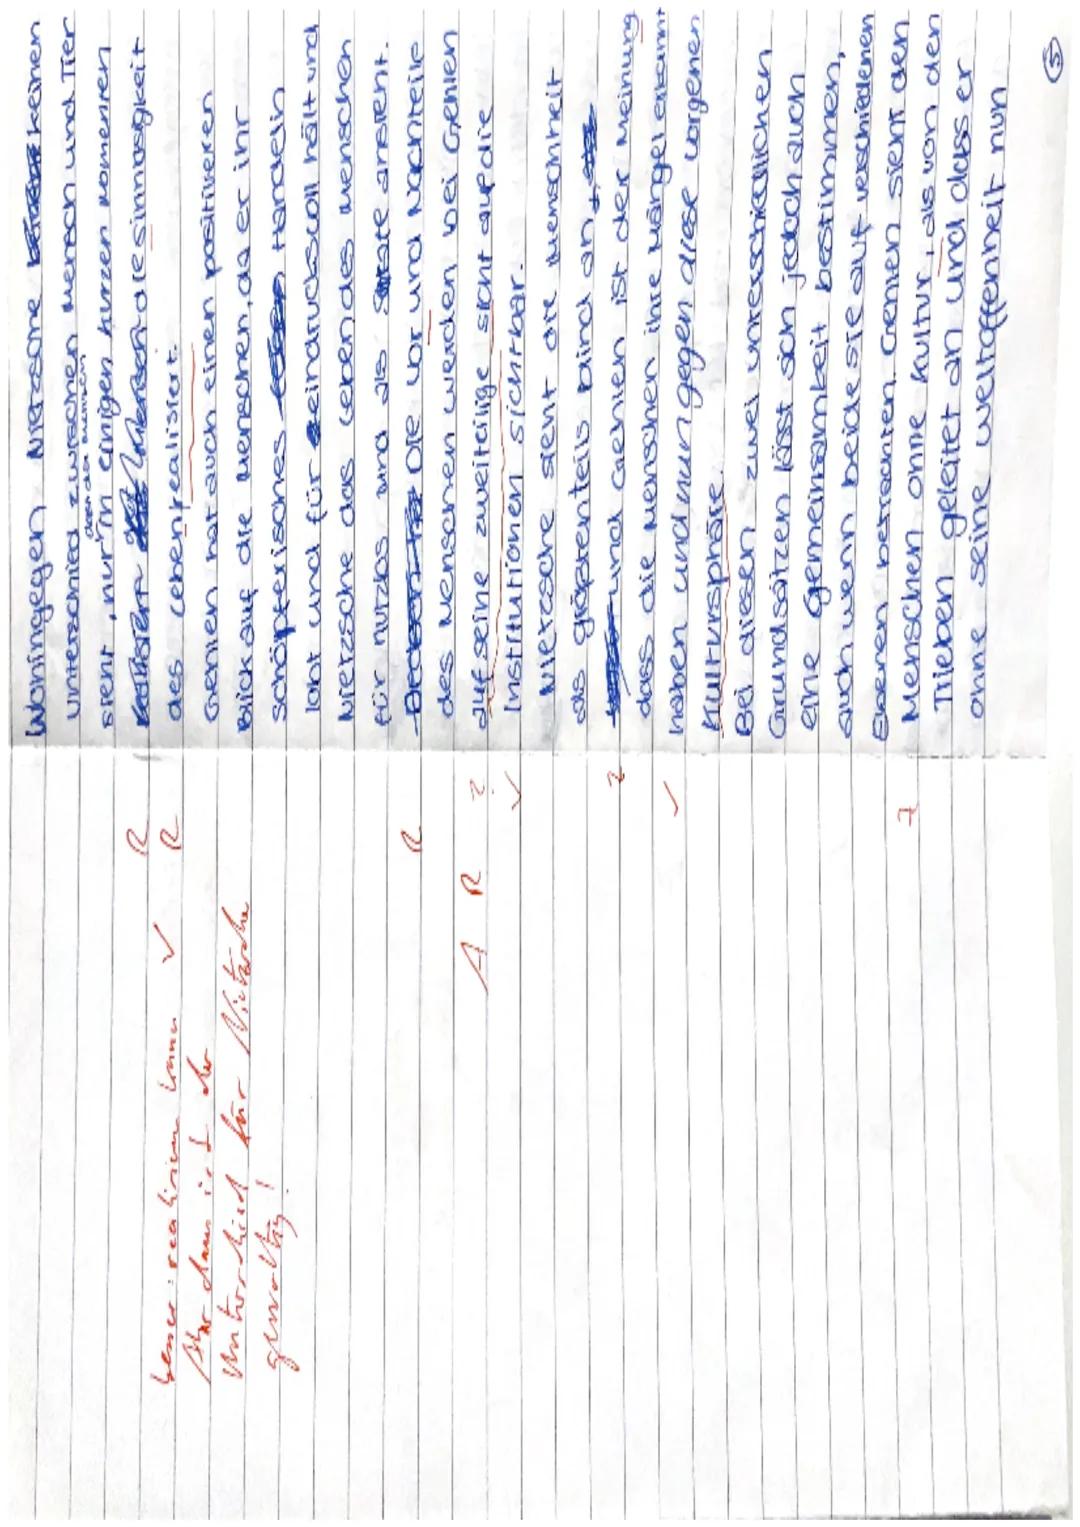 Wohingegen Nietzsche keinen
Unterschied zwischen Mensch und Tier
sieht, nur in einigen kurzen Momenten
des Leben realisiert.
Gehlen hat auch einen positiveren
Blick auf die Menschen, da er ihr
schöpferisches Handeln
lobt und für eindrucksvoll hält und
Nietzsche das Leben des Menschen
für nutzlos und als ansieht.
Die Vor und Nachteile
des Menschen werden bei Gehlen
seine zweiteilige Sicht auf die
Institutionen sichtbar.
Nietzsche sieht die Menschheit
als größtenteils blind an,
und Gehlen ist der Meinung
dass die Menschen ihre Mängel erkannt
haben und nun gegen diese vorgehen
Kultursphäre.
Bei diesen zwei unterschiedlichen
Grundsätzen lässt sich jedoch auch
eine Gemeinsamkeit bestimmen,
auch wenn beide sie auf verschiedenen
Ebenen betrachten. Gehlen sieht den
Menschen ohne Kultur, als von den
Trieben geleitet an und dass er
ohne seine Weltoffenheit nun
5
R
R
✓
besser: realisieren kann
dann ist der
Unterschied für Nietzsche
gewaltig!
R
A R ?
✓
?
✓